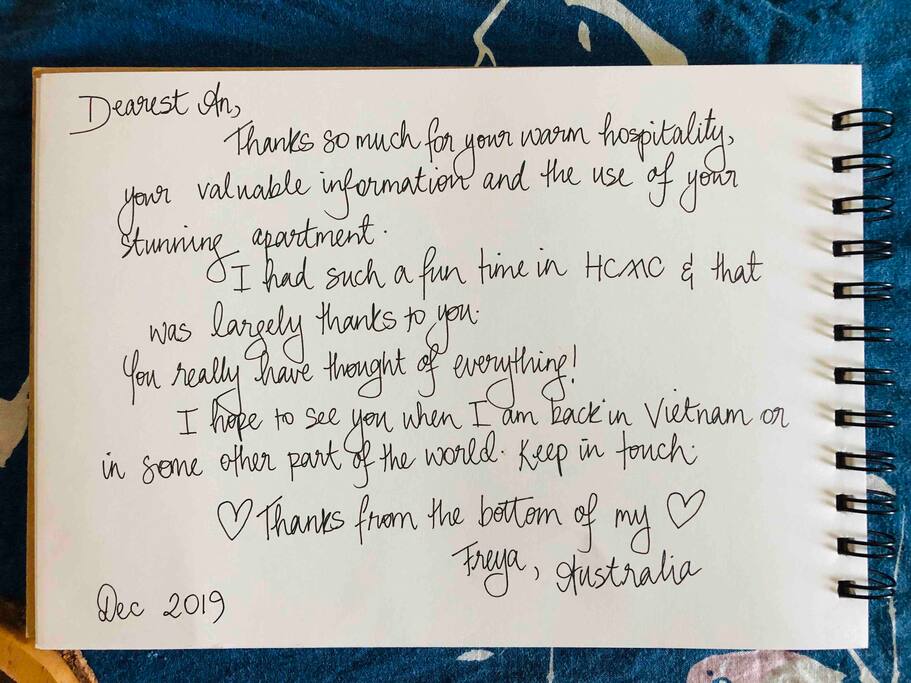 Dearest An,
Thanks so much for your warm hospitality,
your valuable information and the use of your
stunning apartment.
I had such a fun time in HCMC & that
was largely thanks to you.
You really have thought of everything!
I hope to see you when I am back in Vietnam or
in some other part of the world. Keep in touch.
♡ Thanks from the bottom of my ♡
Freya, Australia
Dec 2019